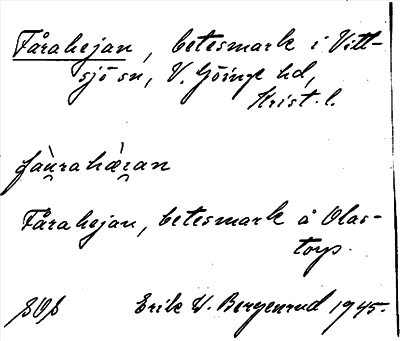 Fårahejan, betesmark i Vitt-
sjö sn, V. Göinge hd,
Krist. l.
Fårahejan, betesmark å Olas-
torp.
Erik W. Bergenrud 1945.